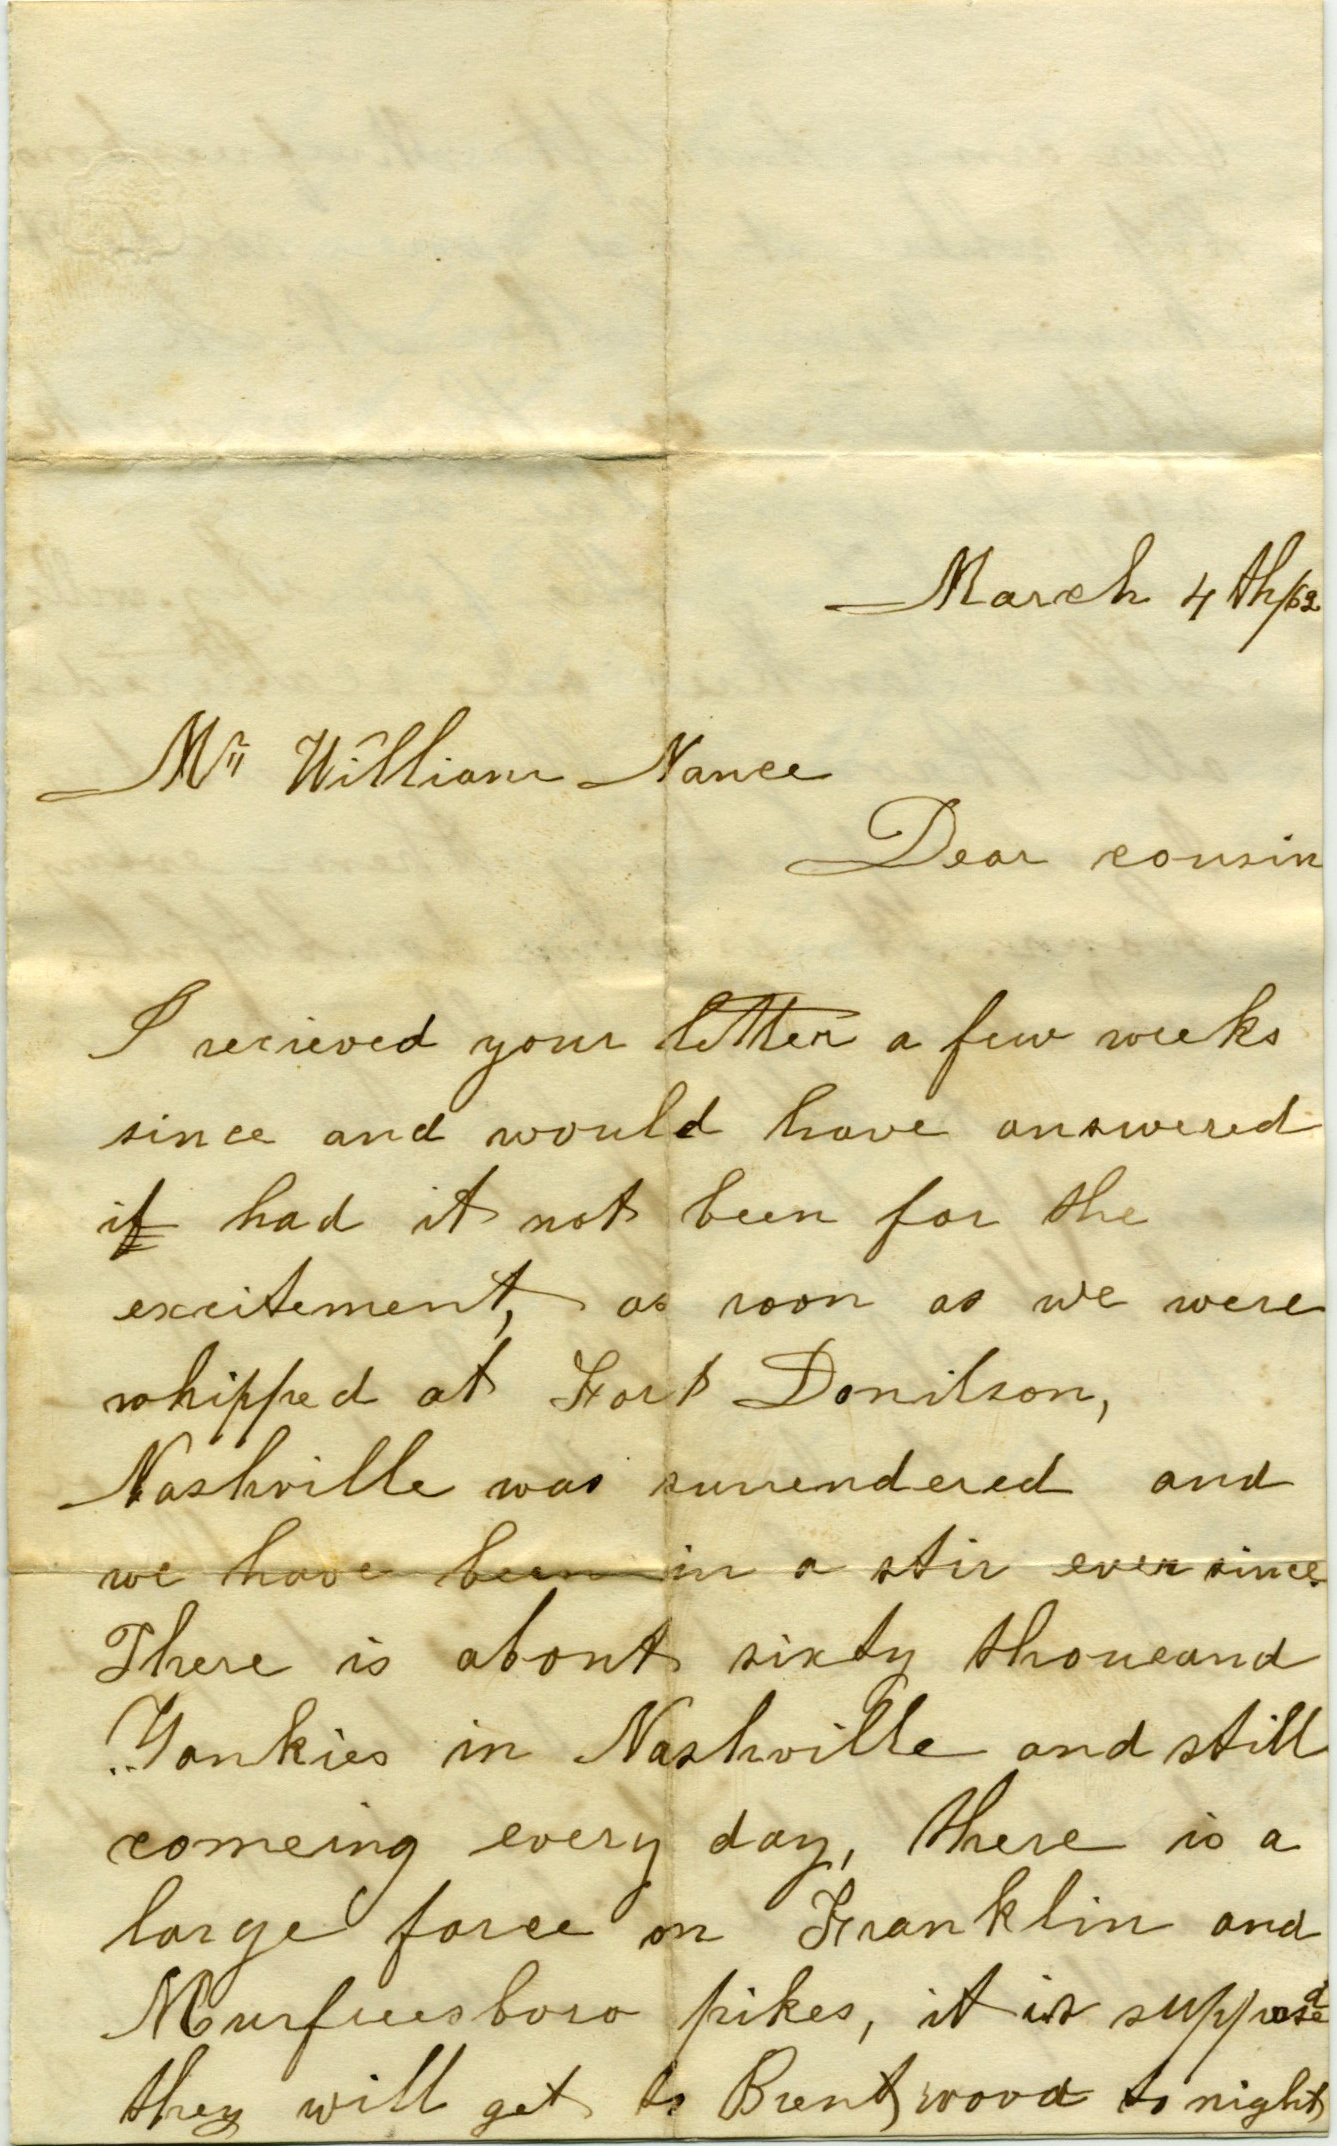 March 4th/62
Mr William Nance
Dear cousin
I recieved your letter a few weeks
since and would have answered
if had it not been for the
excitement, as soon as we were
whipped at Fort Donilson,
Nashville was surrendered and
we have been in a stir ever since.
There is about sixty thouean d
Yankies in Nashville and still
comeing every day, there is a
large force on Franklin and
Murfreesboro pikes, it is supposed
they will get to Brentwood to night